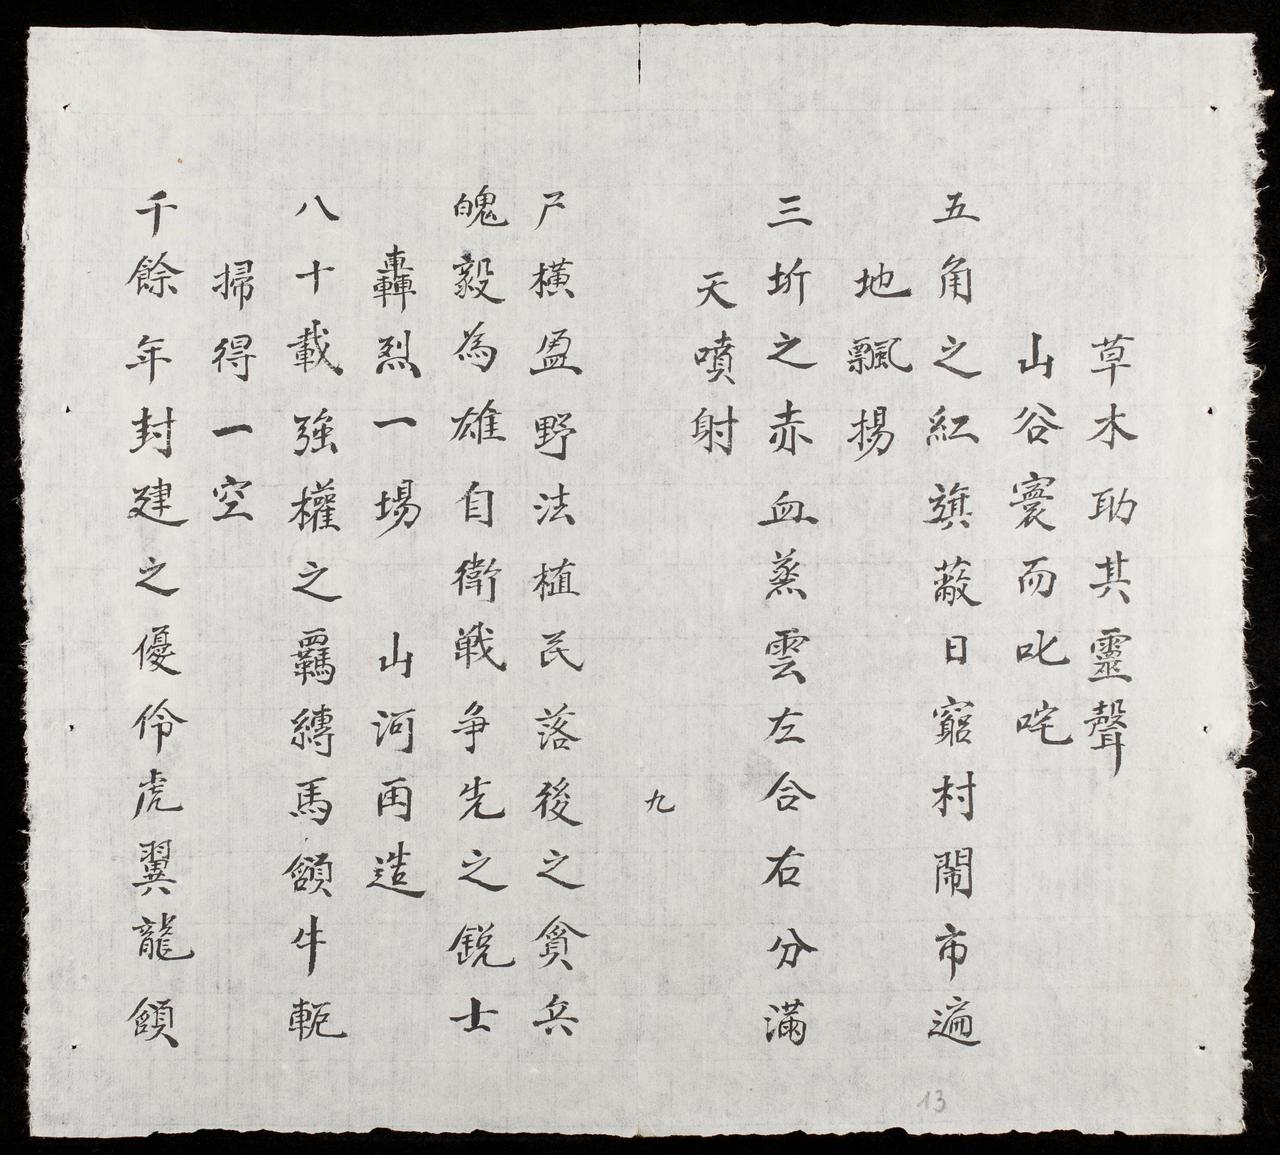 草木助其靈聲
山谷寰而叱咤
五角之紅旗蔽日窮村鬧市遍
地飄揚
三圻之赤血蒸雲左合右分滿
天噴射
九
尸橫盈野法植民落後之貪兵
魄毅為雄自衛戦争先之銳士
轟烈一場 山河再造
八十載強權之羈縛馬頷牛軛
掃得一空
千餘年封建之優伶虎翼龍頷
13